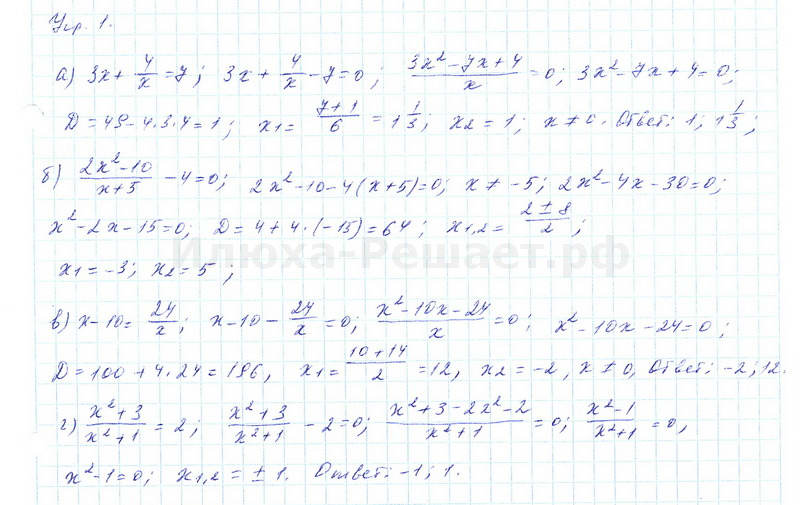 Упр. 1.
а) 3x + 4/x = 7; 3x + 4/x - 7 = 0; (3x² - 7x + 4)/x = 0; 3x² - 7x + 4 = 0;
D = 49 - 4·3·4 = 1; x₁ = (7+1)/6 = 1 1/3; x₂ = 1; x ≠ 0. Ответ: 1; 1 1/3;
б) (2x² - 10)/(x+5) - 4 = 0; 2x² - 10 - 4(x+5) = 0; x ≠ -5; 2x² - 4x - 30 = 0;
x² - 2x - 15 = 0; D = 4 + 4·(-15) = 64; x₁,₂ = (2 ± 8)/2;
Илюха-Решает.рф
x₁ = -3; x₂ = 5;
в) x - 10 = 24/x; x - 10 - 24/x = 0; (x² - 10x - 24)/x = 0; x² - 10x - 24 = 0;
D = 100 + 4·24 = 196, x₁ = (10+14)/2 = 12, x₂ = -2, x ≠ 0, Ответ: -2; 12.
г) (x² + 3)/(x² + 1) = 2; (x² + 3)/(x² + 1) - 2 = 0; (x² + 3 - 2x² - 2)/(x² + 1) = 0; (x² - 1)/(x² + 1) = 0,
x² - 1 = 0; x₁,₂ = ± 1. Ответ: -1; 1.